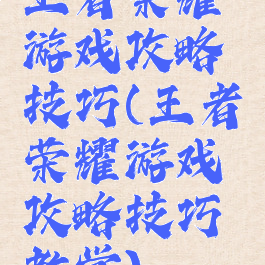 王者荣耀
游戏攻略
技巧(王者
荣耀游戏
攻略技巧
教学)